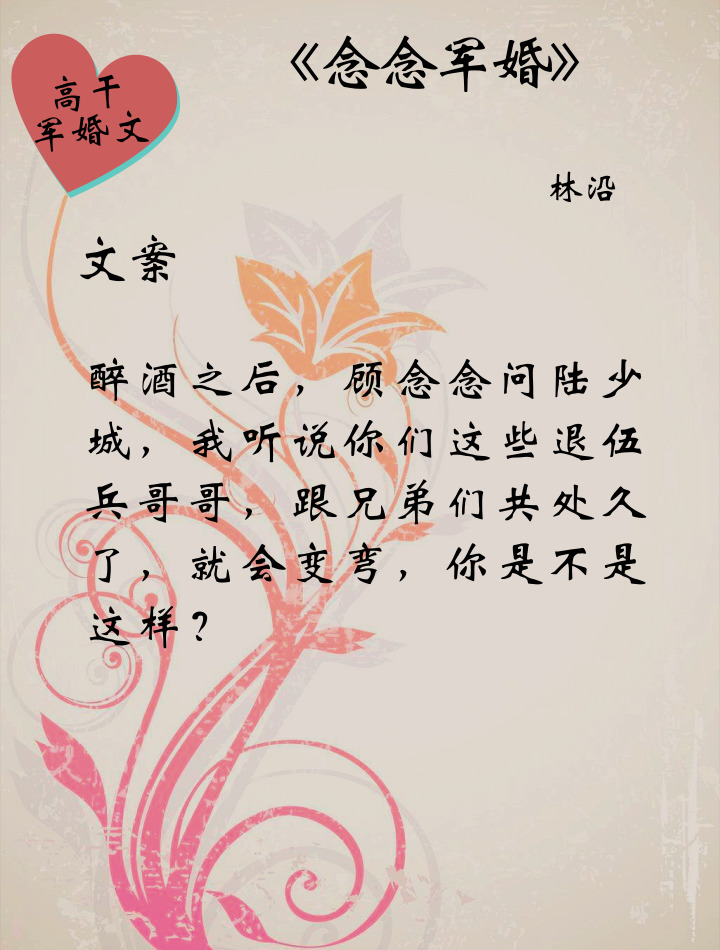 高干
军婚文
《念念军婚》
林沿
文案
醉酒之后，顾念念问陆少
城，我听说你们这些退伍
兵哥哥，跟兄弟们共处久
了，就会变弯，你是不是
这样？